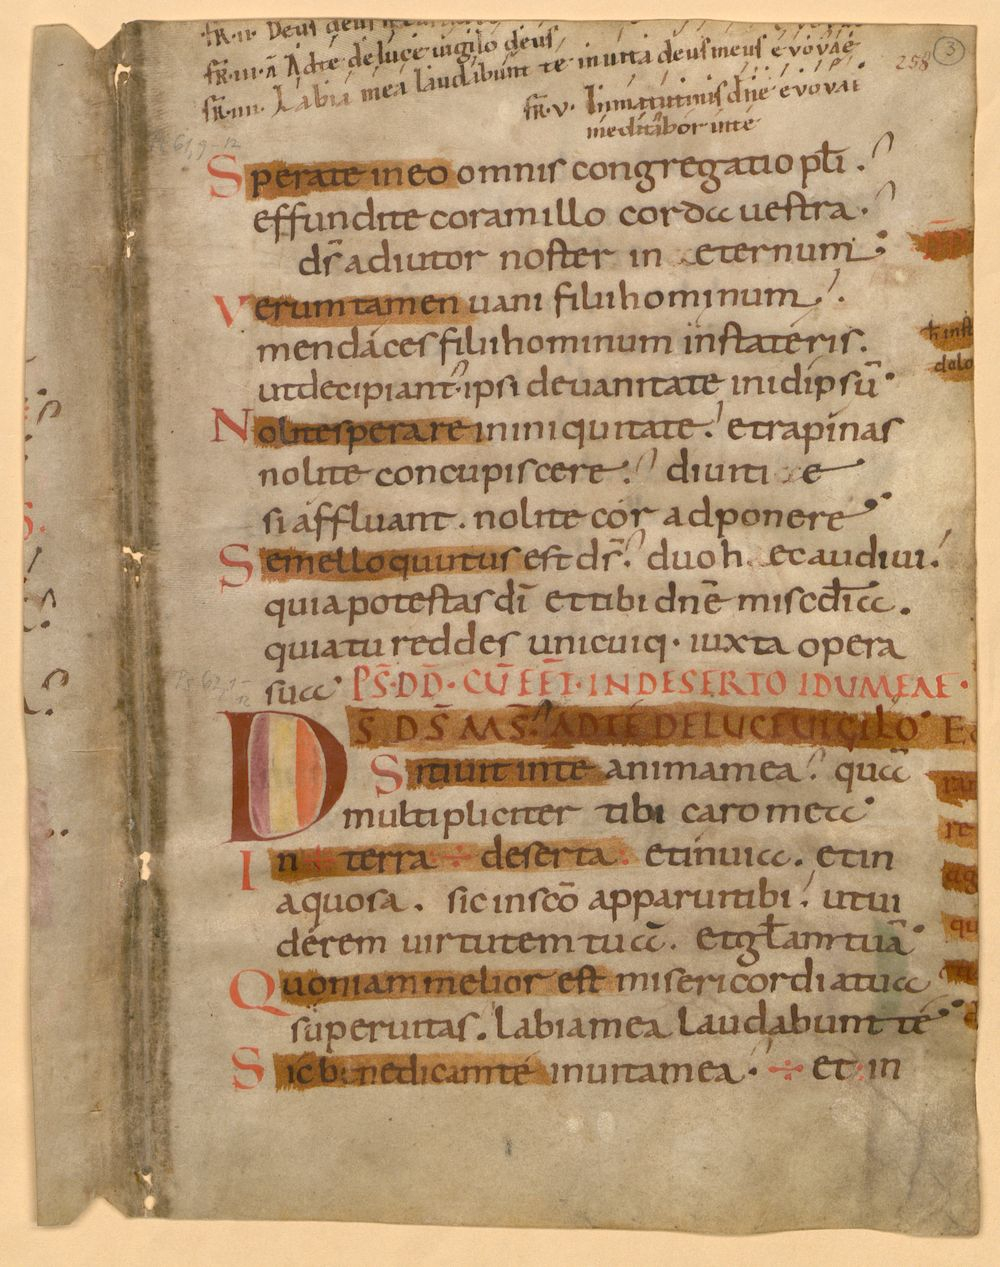 fr·ii· Deus deus
fr·iii·a Ad te de luce uigilo deus
fr·iiii· Labia mea laudabunt te in uita deus meus evovae
258
3
fr·v· In matutinis dñe evovae
meditabor in te
Ps 61,9-12
Sperate in eo omnis congregatio pƚi .
effundite coram illo corda uestra·
dš adiutor noster in eternum ;
Uerumtamen uani filii hominum .
mendaces filii hominum in stateris .
ut decipiant · ipsi de uanitate in idipsū ·
Nolite sperare in iniquitate · et rapinas
nolite concupiscere · diuiti e
si affluant . nolite cor adponere ·
Semel loquutus est dš · duo hec audiui ·
quia potestas dī et tibi dnē misc̄dia .
quia tu reddes unicuiq · iuxta opera
sua · PS̄·DD̄·CŪ EĒT·IN DESERTO IDUMEAE·
Ps 62,1-
12
DS̄ DS̄ MS̄· AD TE DE LUCE UIGILO·
Sitiuit in te anima mea · quā
multipliciter tibi caro mea ·
In ÷ terra ÷ deserta : et inuia . et in
aquosa . sic in scō apparui tibi · ut ui
derem uirtutem tuā . et gƚam tuā ·
Quoniam melior est misericordia tua
super uitas . labia mea laudabunt te ·
Sic benedicam te in uita mea · ÷ et : in